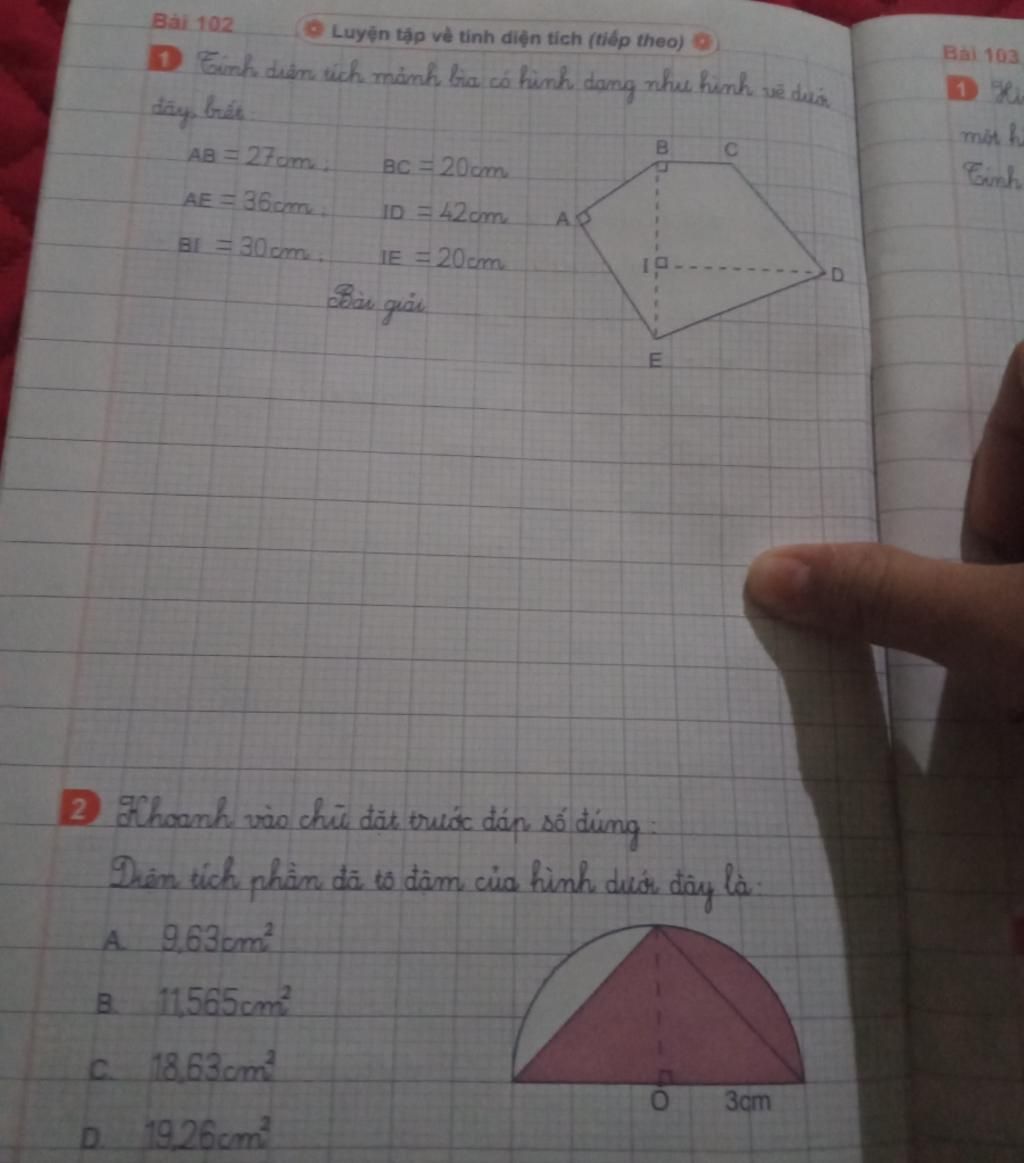 Bài 102
Luyện tập về tính diện tích (tiếp theo)
1 Tính diện tích mảnh bìa có hình dạng như hình vẽ dưới
đây, biết:
AB = 27cm; BC = 20cm
AE = 36cm; ID = 42cm
BI = 30cm; IE = 20cm
Bài giải
B C
A
I D
E
2 Khoanh vào chữ đặt trước đáp số đúng:
Diện tích phần đã tô đậm của hình dưới đây là:
A. 9,63cm²
B. 11,565cm²
C. 18,63cm²
D. 19,26cm²
O 3cm
Bài 103
1
một h
Tính